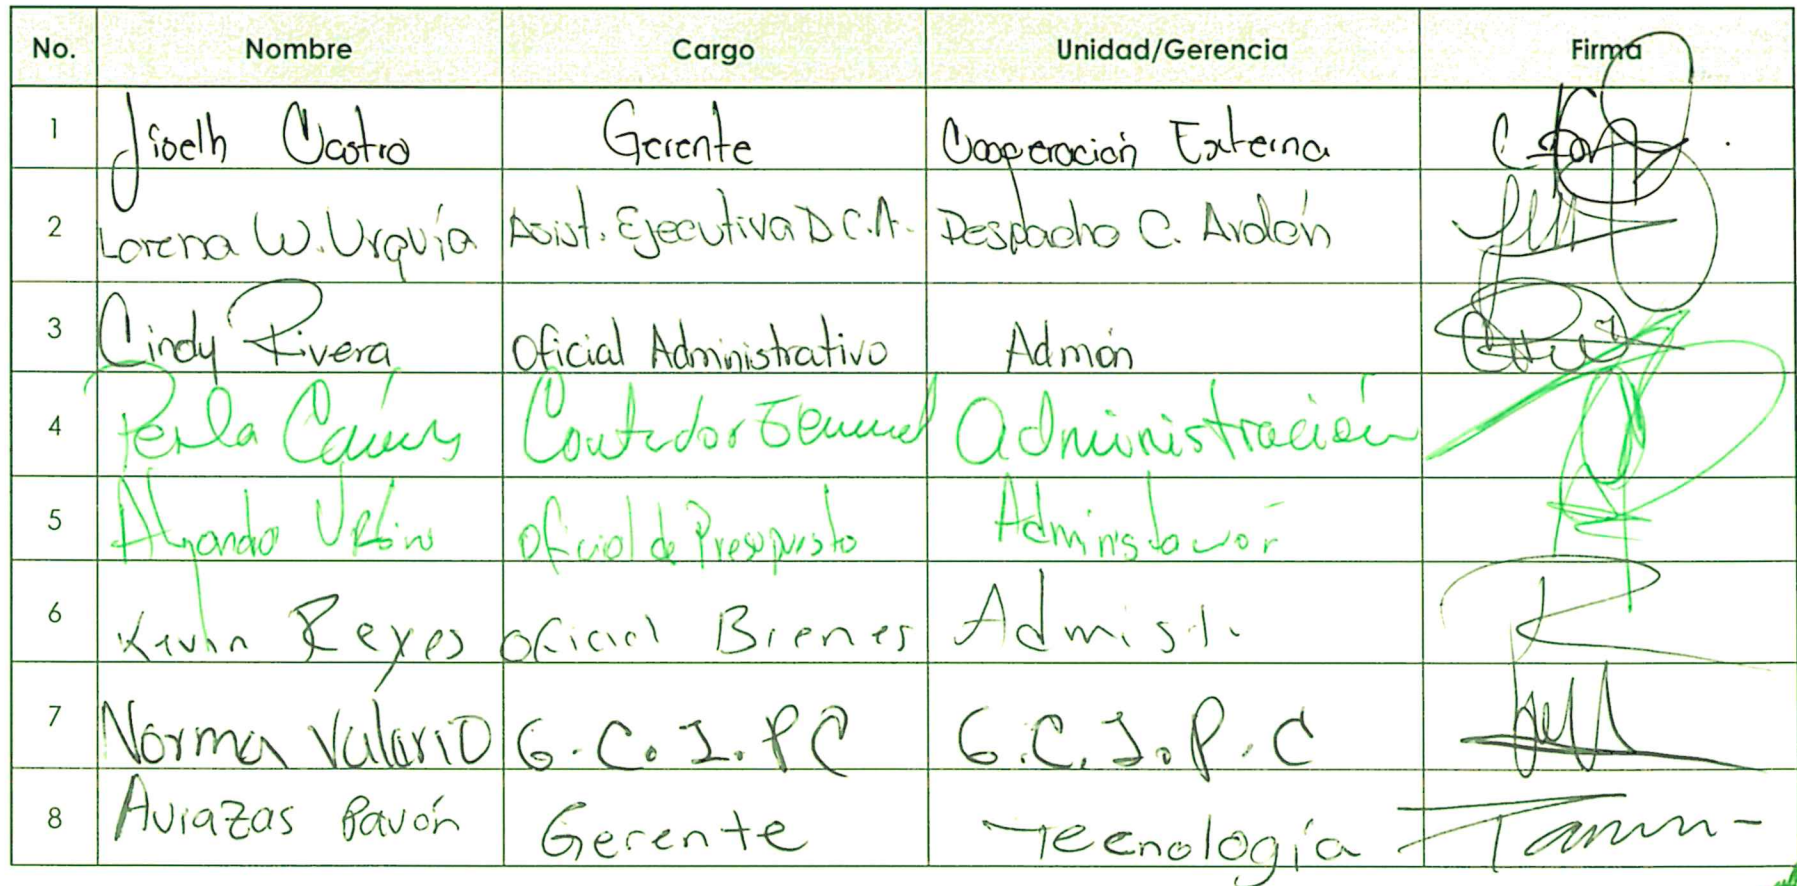 No. Nombre Cargo Unidad/Gerencia Firma
1 Jiselh Castro Gerente Cooperación Externa
2 Lorena W. Urquía Asist. Ejecutiva D.C.A. Despacho C. Ardón
3 Cindy Rivera Oficial Administrativo Admón
4 Perla Contador General Administración
5 Oficial de Presupuesto
6 Kevin Reyes Oficial Bienes Admist.
7 Norma Valerio G.C.I.PC G.C.I.P.C
8 Pavón Gerente Tecnología